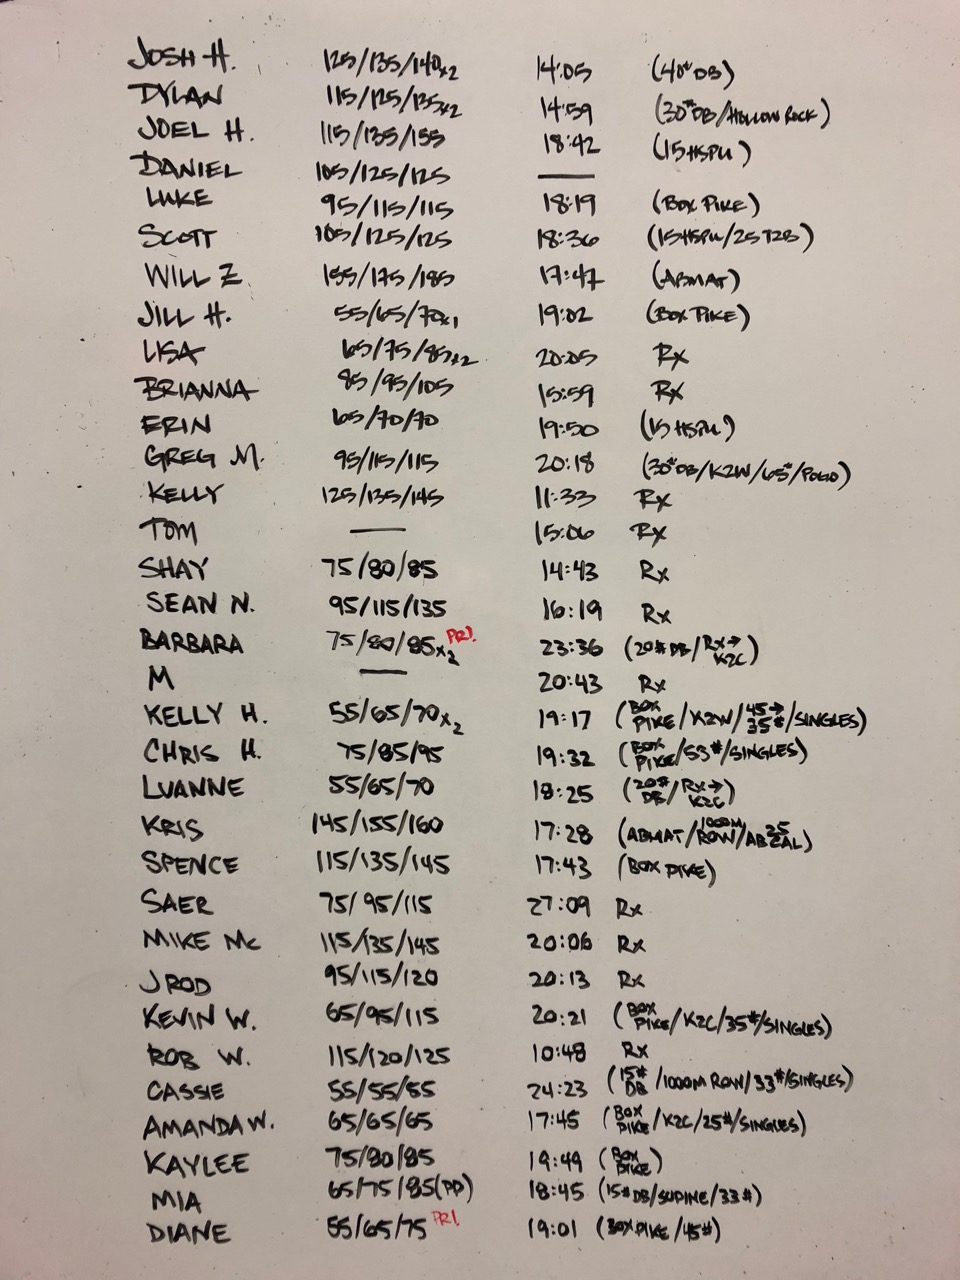 JOSH H. 125/135/140x2 14:05 (40# DB)
DYLAN 115/125/135x2 14:59 (30# DB/HOLLOW ROCK)
JOEL H. 115/135/155 18:42 (15 HSPU)
DANIEL 105/125/125 —
LUKE 95/115/115 18:19 (BOX PIKE)
SCOTT 105/125/125 18:36 (15 HSPU/25 T2B)
WILL Z. 155/175/185 17:47 (ABMAT)
JILL H. 55/65/70x1 19:02 (BOX PIKE)
LISA 65/75/85x2 20:05 Rx
BRIANNA 85/95/105 15:59 Rx
ERIN 65/70/70 19:50 (15 HSPU)
GREG M. 95/115/115 20:18 (30# DB/K2W/65#/POGO)
KELLY 125/135/145 11:33 Rx
TOM — 15:06 Rx
SHAY 75/80/85 14:43 Rx
SEAN N. 95/115/135 16:19 Rx
BARBARA 75/80/85x2 PR! 23:36 (20# DB/Rx→K2C)
M — 20:43 Rx
KELLY H. 55/65/70x2 19:17 (BOX PIKE/K2W/45→35#/SINGLES)
CHRIS H. 75/85/95 19:32 (BOX PIKE/53#/SINGLES)
LUANNE 55/65/70 18:25 (20# DB/Rx→K2C)
KRIS 145/155/160 17:28 (ABMAT/1000M ROW/AB 25 CAL)
SPENCE 115/135/145 17:43 (BOX PIKE)
SAER 75/95/115 27:09 Rx
MIKE Mc 115/135/145 20:06 Rx
J ROD 95/115/120 20:13 Rx
KEVIN W. 65/95/115 20:21 (BOX PIKE/K2C/35#/SINGLES)
ROB W. 115/120/125 10:48 Rx
CASSIE 55/55/55 24:23 (15# DB/1000M ROW/33#/SINGLES)
AMANDA W. 65/65/65 17:45 (BOX PIKE/K2C/25#/SINGLES)
KAYLEE 75/80/85 19:49 (BOX PIKE)
MIA 65/75/85(PP) 18:45 (15# DB/SUPINE/33#)
DIANE 55/65/75 PR! 19:01 (BOX PIKE/45#)